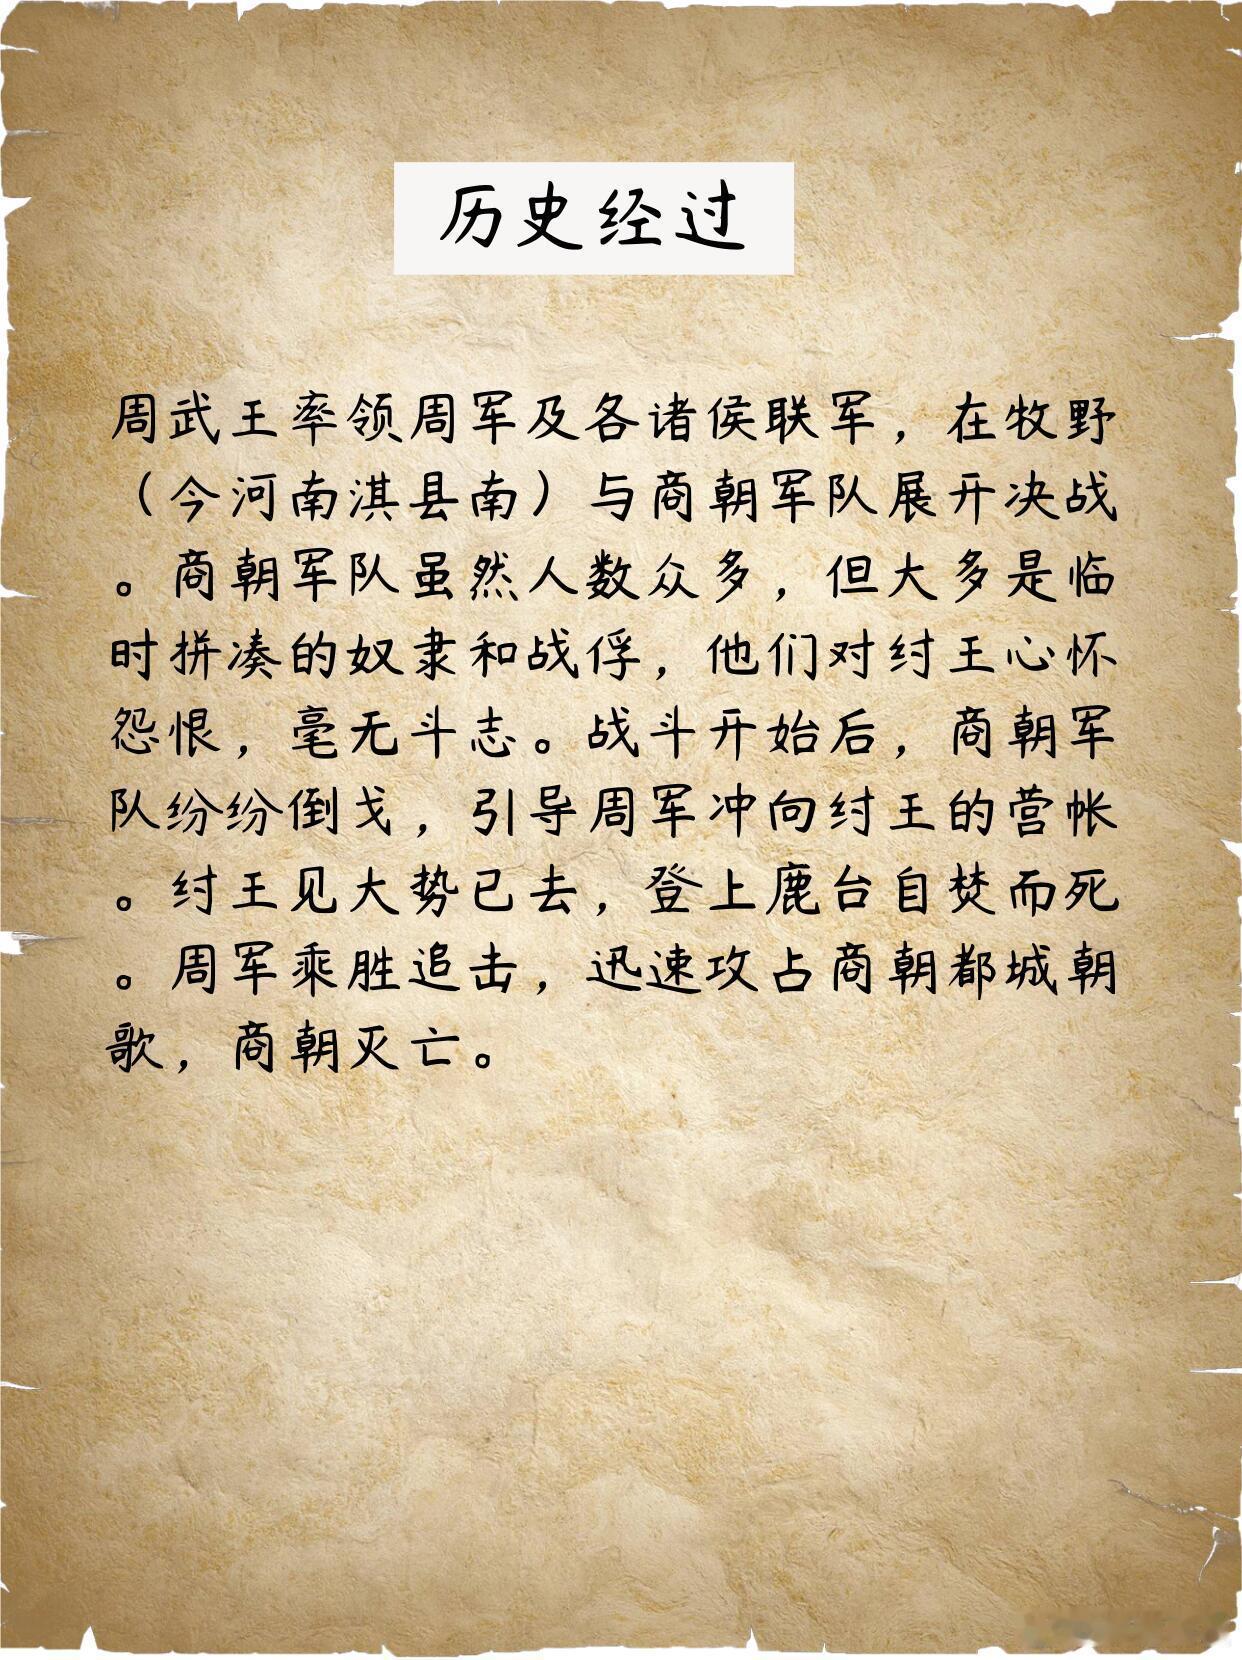 历史经过
周武王率领周军及各诸侯联军，在牧野
（今河南淇县南）与商朝军队展开决战
。商朝军队虽然人数众多，但大多是临
时拼凑的奴隶和战俘，他们对纣王心怀
怨恨，毫无斗志。战斗开始后，商朝军
队纷纷倒戈，引导周军冲向纣王的营帐
。纣王见大势已去，登上鹿台自焚而死
。周军乘胜追击，迅速攻占商朝都城朝
歌，商朝灭亡。